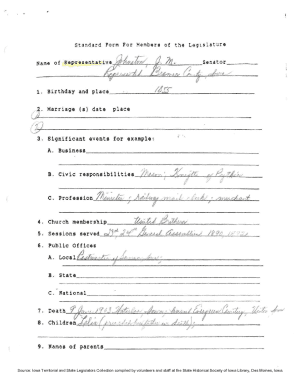 Standard Form For Members of the Legislature
Name of Representative Johnston, J. M. Senator
Represented Bremer County, Iowa
1. Birthday and place 1855
2. Marriage (s) date place
3. Significant events for example:
A. Business
B. Civic responsibilities Mason; Knights of Pythias
C. Profession Minister; railway mail clerk; merchant
4. Church membership United Brethren
5. Sessions served General Assemblies 1890,
6. Public Offices
A. Local Postmaster of
B. State
C. National
7. Death 9 1903 Iowa; buried Cemetery, Iowa
8. Children
9. Names of parents
Source: Iowa Territorial and State Legislators Collection compiled by volunteers and staff at the State Historical Society of Iowa Library, Des Moines, Iowa.